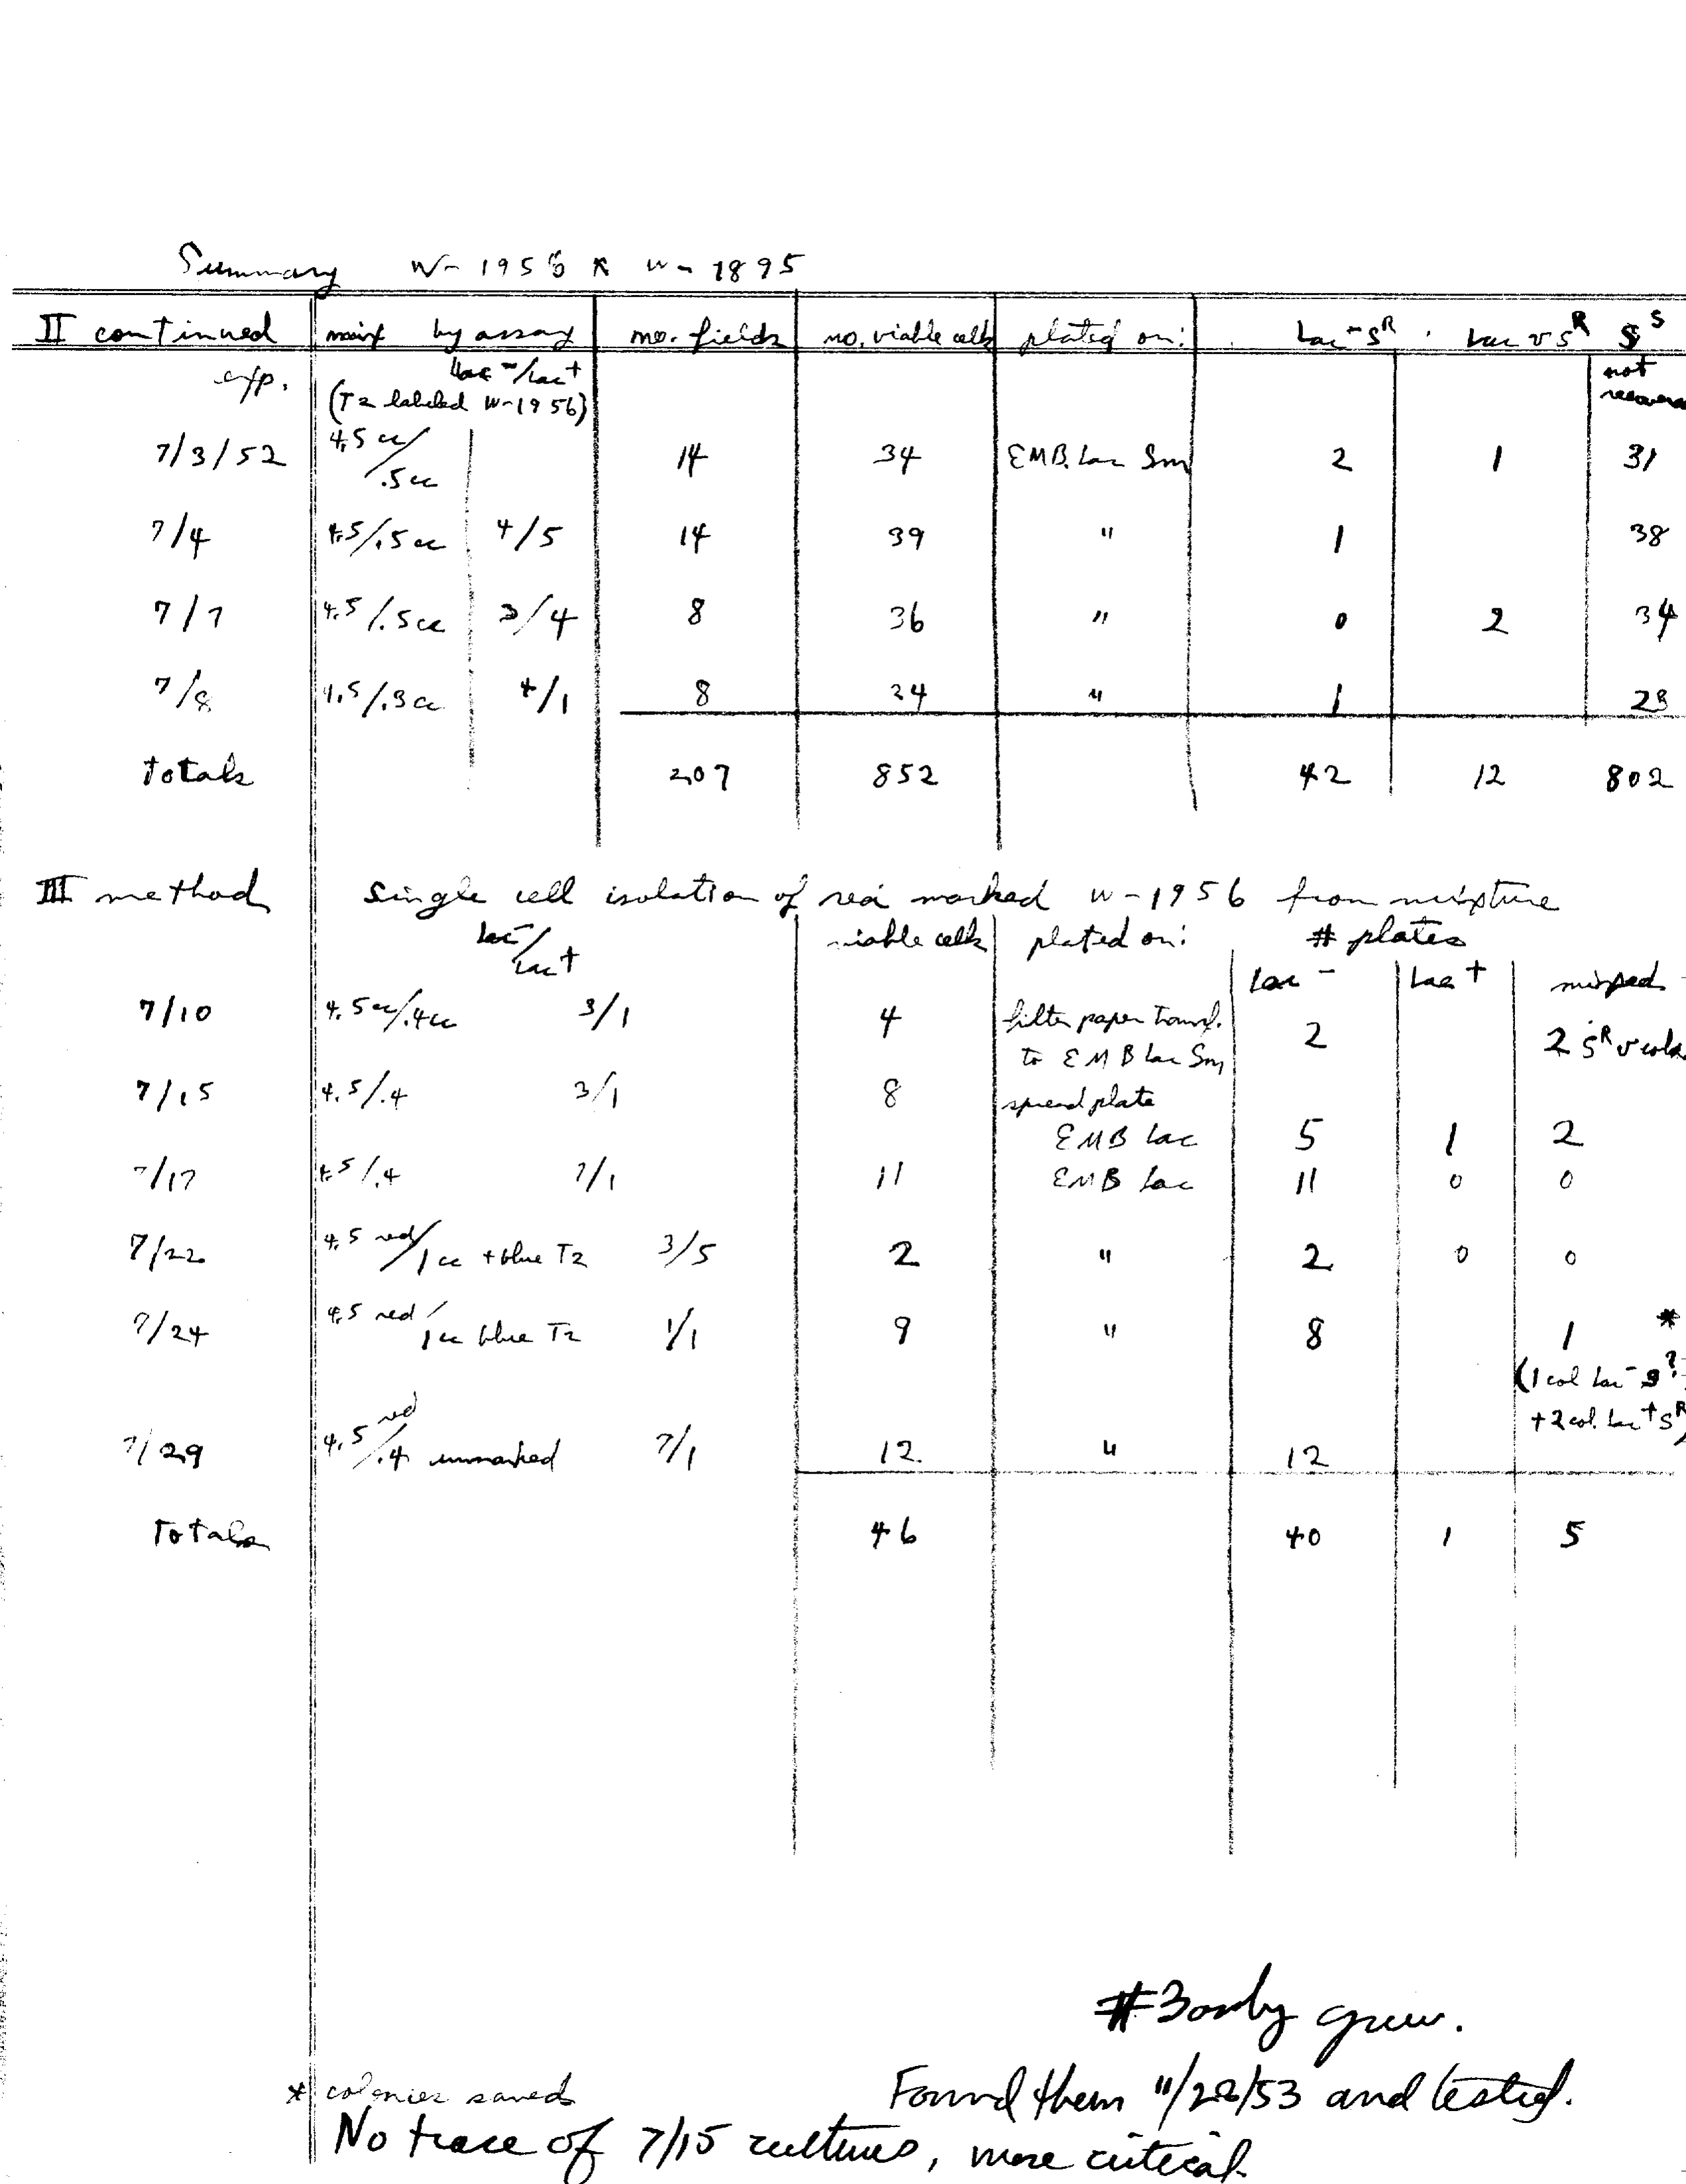 Summary W-1956 x W-1895
II continued mix by assay no. fields no. viable cells plated on: Lac⁻ Sᴿ Lac v Sᴿ Sˢ
exp. Lac⁻/Lac⁺ not
(T2 labeled W-1956)
7/3/52 4.5 cc/.5cc 14 34 EMB Lac Sm 2 1 31
7/4 4.5/.5 cc 4/5 14 39 " 1 38
7/7 4.5/.5cc 3/4 8 36 " 0 2 34
7/8 4.5/.3cc 4/1 8 24 " 1 23
Totals 207 852 42 12 802
III method Single cell isolation of red marked W-1956 from mixture
Lac⁻/Lac⁺ viable cells plated on: # plates
Lac⁻ Lac⁺ mixed
7/10 4.5cc/.4cc 3/1 4 filter paper transf. 2 2 Sᴿ v cols
to EMB Lac Sm
7/15 4.5/.4 3/1 8 spread plate
EMB Lac 5 1 2
7/17 4.5/.4 7/1 11 EMB Lac 11 0 0
7/22 4.5 red/1 cc + blue T2 3/5 2 " 2 0 0
7/24 4.5 red/1 cc blue T2 1/1 9 " 8 1 *
(1 col Lac⁻ S?
+2 col. Lac⁺ Sᴿ)
7/29 4.5 red/.4 unmarked 7/1 12 " 12
Totals 46 40 1 5
#3 only grew.
* colonies saved Found them 11/28/53 and tested.
No trace of 7/15 cultures, more critical.